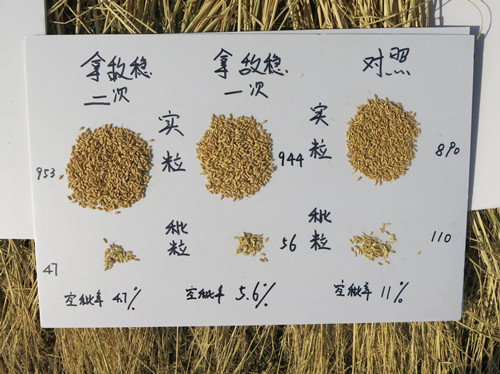 拿敌稳
二次
拿敌稳
一次
对照
实粒
实粒
953
944
890
秕粒
秕粒
47
56
110
空秕率 4.7%
空秕率 5.6%
空秕率 11%